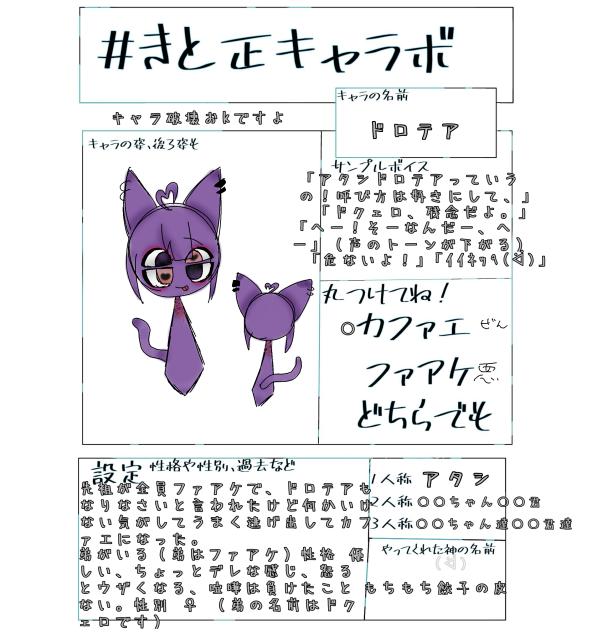 #きと正キャラボ
キャラ破壊おkですよ
キャラの名前
ドロテア
キャラの姿、後ろ姿も
サンプルボイス
「アタシドロテアっていう
の！呼び方は好きにして、」
「ドクェロ、残念だよ。」
「へー！そーなんだー、へ
ー」（声のトーンが下がる）
「危ないよ！」「ｲｲﾈｯｸｩ(ᐛ)」
丸つけてね！
○カファエ ぜん
ファアケ 悪
どちらでも
設定 性格や性別、過去など
先祖が全員ファアケで、ドロテアも
なりなさいと言われたけど何かいけ
ない気がしてうまく逃げ出してカフ
ァエになった。
弟がいる（弟はファアケ）性格 優
しい、ちょっとデレな感じ、怒る
とウザくなる、喧嘩は負けたこと
ない。性別 ♀ （弟の名前はドク
ェロです）
1人称 アタシ
2人称○○ちゃん○○君
3人称○○ちゃん達○○君達
やってくれた神の名前
(ᐛ)
もちもち餃子の皮